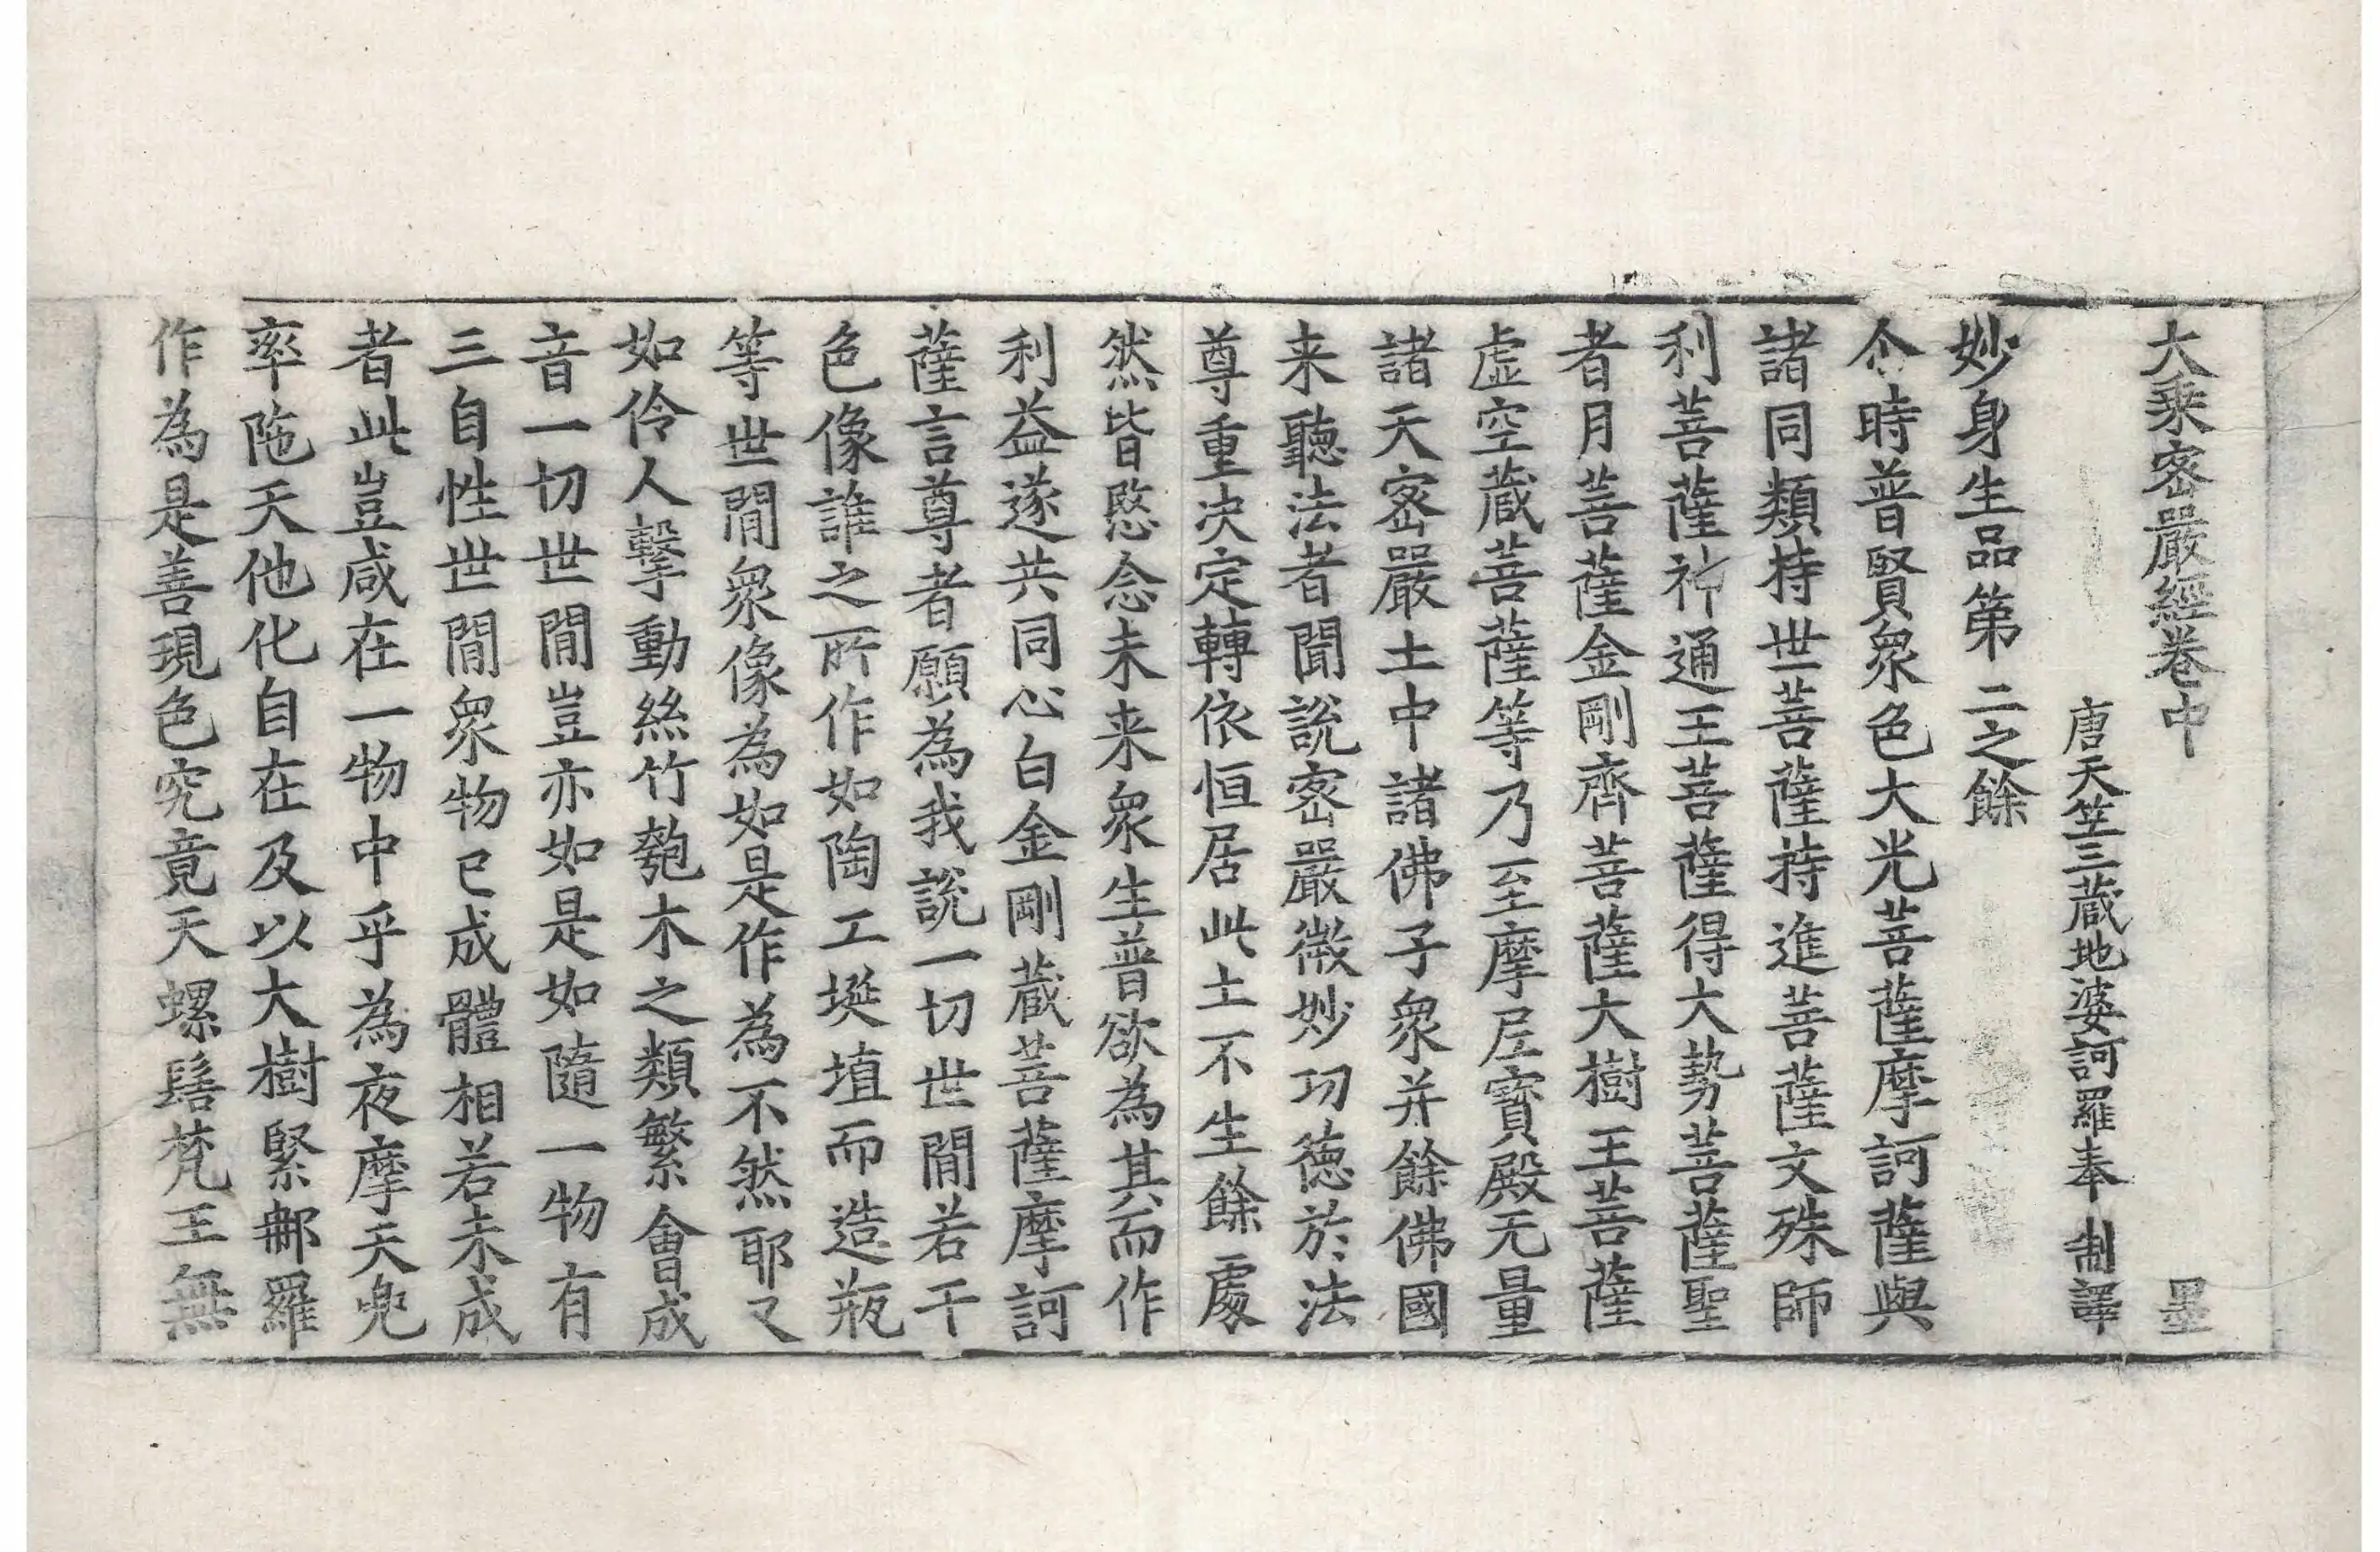 大乘密嚴經卷中 墨
唐天竺三藏地婆訶羅奉 制譯
妙身生品第二之餘
尒時普賢衆色大光菩薩摩訶薩與
諸同類持世菩薩持進菩薩文殊師
利菩薩神通王菩薩得大勢菩薩聖
者月菩薩金剛齊菩薩大樹王菩薩
虛空藏菩薩等乃至摩尼寶殿无量
諸天密嚴土中諸佛子衆并餘佛國
来聽法者聞說密嚴微妙功德於法
尊重决定轉依恒居此土不生餘處
然皆愍念未来衆生普欲為其而作
利益遂共同心白金剛藏菩薩摩訶
薩言尊者願為我說一切世間若干
色像誰之所作如陶工埏埴而造瓶
等世間衆像為如是作為不然耶又
如伶人擊動絲竹匏木之類繁會成
音一切世間豈亦如是如隨一物有
三自性世間衆物已成體相若未成
者此豈咸在一物中乎為夜摩天兜
率陁天他化自在及以大樹緊郍羅
作為是善現色究竟天螺髻梵王無